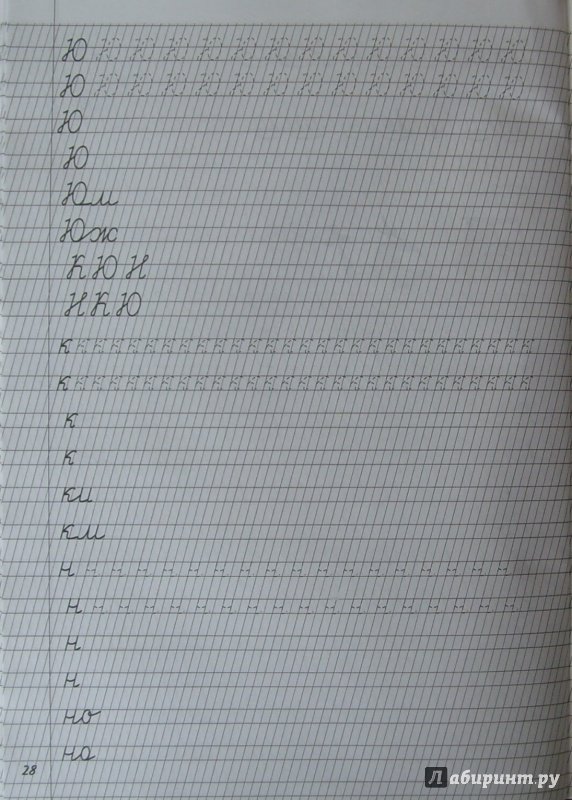 Ю Ю Ю Ю Ю Ю Ю Ю Ю Ю Ю Ю Ю Ю
Ю Ю Ю Ю Ю Ю Ю Ю Ю Ю Ю Ю Ю Ю
Ю
Ю
Юм
Юж
К Ю Н
Н К Ю
к к к к к к к к к к к к к к к к к к к к к к к к к к к к
к к к к к к к к к к к к к к к к к к к к к к к к к к к к
к
к
ки
км
н н н н н н н н н н н н н н н н н н
н н н н н н н н н н н н н н н н н н
н
н
но
на
28
Лабиринт.ру